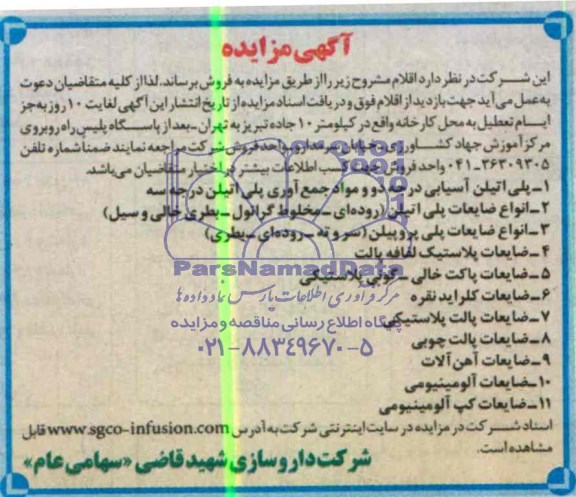 آگهی مزایده
این شرکت در نظر دارد اقلام مشروح زیر را از طریق مزایده به فروش برساند. لذا از کلیه متقاضیان دعوت
به عمل می آید جهت بازدید از اقلام فوق و دریافت اسناد مزایده از تاریخ انتشار این آگهی لغایت ۱۰ روز به جز
ایام تعطیل به محل کارخانه واقع در کیلومتر ۱۰ جاده تبریز به تهران - بعد از پاسگاه پلیس راه روبروی
مرکز آموزش جهاد کشاورزی - خیابان سرمد ارو - واحد فروش شرکت مراجعه نمایند ضمنا شماره تلفن
۰۴۱-۳۶۳۰۹۳۰۵ واحد فروش جهت کسب اطلاعات بیشتر در اختیار متقاضیان می باشد.
۱- پلی اتیلن آسیابی درجه دو و مواد جمع آوری پلی اتیلن درجه سه
۲- انواع ضایعات پلی اتیلن (روده ای - مخلوط گرانول - بطری خالی و سیل)
۳- انواع ضایعات پلی پروپیلن (سر و ته - روده ای - بطری)
۴- ضایعات پلاستیک لفافه پالت
۵- ضایعات پاکت خالی - گونی پلاستیکی
۶- ضایعات کلراید نقره
۷- ضایعات پالت پلاستیکی
۸- ضایعات پالت چوبی
۹- ضایعات آهن آلات
۱۰- ضایعات آلومینیومی
۱۱- ضایعات کپ آلومینیومی
اسناد شرکت در مزایده در سایت اینترنتی شرکت به آدرس www.sgco-infusion.com قابل
مشاهده است.
شرکت داروسازی شهید قاضی «سهامی عام»
ParsNamadData
مرکز فرآوری اطلاعات پارس نماد داده ها
پایگاه اطلاع رسانی مناقصه و مزایده
۰۲۱-۸۸۳۴۹۶۷۰-۵